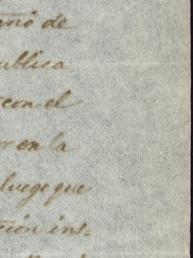 año de
ublica
con el
r en la
luego que
ción ins-